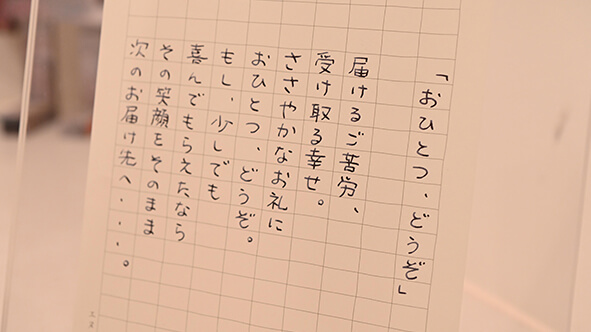 「おひとつ、どうぞ」
届けるご苦労、
受け取る幸せ。
ささやかなお礼に
おひとつ、どうぞ。
もし、少しでも
喜んでもらえたなら
その笑顔をそのまま
次のお届け先へ・・・。